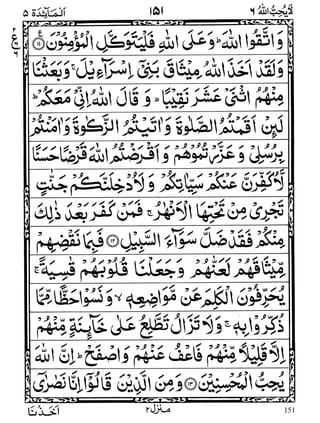 لَا يُحِبُّ اللّٰهُ ٦ ١٥١ اَلْمَآئِدَة ٥
وَ اتَّقُوا اللّٰهَ ؕ وَ عَلَی اللّٰهِ فَلْيَتَوَكَّلِ الْمُؤْمِنُوْنَ ﴿١١﴾
وَ لَقَدْ اَخَذَ اللّٰهُ مِيْثَاقَ بَنِیْۤ اِسْرَآءِيْلَ ۚ وَ بَعَثْنَا
مِنْهُمُ اثْنَیْ عَشَرَ نَقِيْبًا ؕ وَ قَالَ اللّٰهُ اِنِّیْ مَعَكُمْ ؕ
لَئِنْ اَقَمْتُمُ الصَّلٰوةَ وَ اٰتَيْتُمُ الزَّكٰوةَ وَ اٰمَنْتُمْ
بِرُسُلِیْ وَ عَزَّرْتُمُوْهُمْ وَ اَقْرَضْتُمُ اللّٰهَ قَرْضًا حَسَنًا
لَّاُكَفِّرَنَّ عَنْكُمْ سَيِّاٰتِكُمْ وَ لَاُدْخِلَنَّكُمْ جَنّٰتٍ
تَجْرِیْ مِنْ تَحْتِهَا الْاَنْهٰرُ ۚ فَمَنْ كَفَرَ بَعْدَ ذٰلِكَ
مِنْكُمْ فَقَدْ ضَلَّ سَوَآءَ السَّبِيْلِ ﴿١٢﴾ فَبِمَا نَقْضِهِمْ
مِّيْثَاقَهُمْ لَعَنّٰهُمْ وَ جَعَلْنَا قُلُوْبَهُمْ قٰسِيَةً ۚ
يُحَرِّفُوْنَ الْكَلِمَ عَنْ مَّوَاضِعِهٖ ۙ وَ نَسُوْا حَظًّا مِّمَّا
ذُكِّرُوْا بِهٖ ۚ وَ لَا تَزَالُ تَطَّلِعُ عَلٰی خَآئِنَةٍ مِّنْهُمْ
اِلَّا قَلِيْلًا مِّنْهُمْ فَاعْفُ عَنْهُمْ وَ اصْفَحْ ؕ اِنَّ اللّٰهَ
يُحِبُّ الْمُحْسِنِيْنَ ﴿١٣﴾ وَ مِنَ الَّذِيْنَ قَالُوْۤا اِنَّا نَصٰرٰۤی
151 منزل ٢ اَخَذْنَا